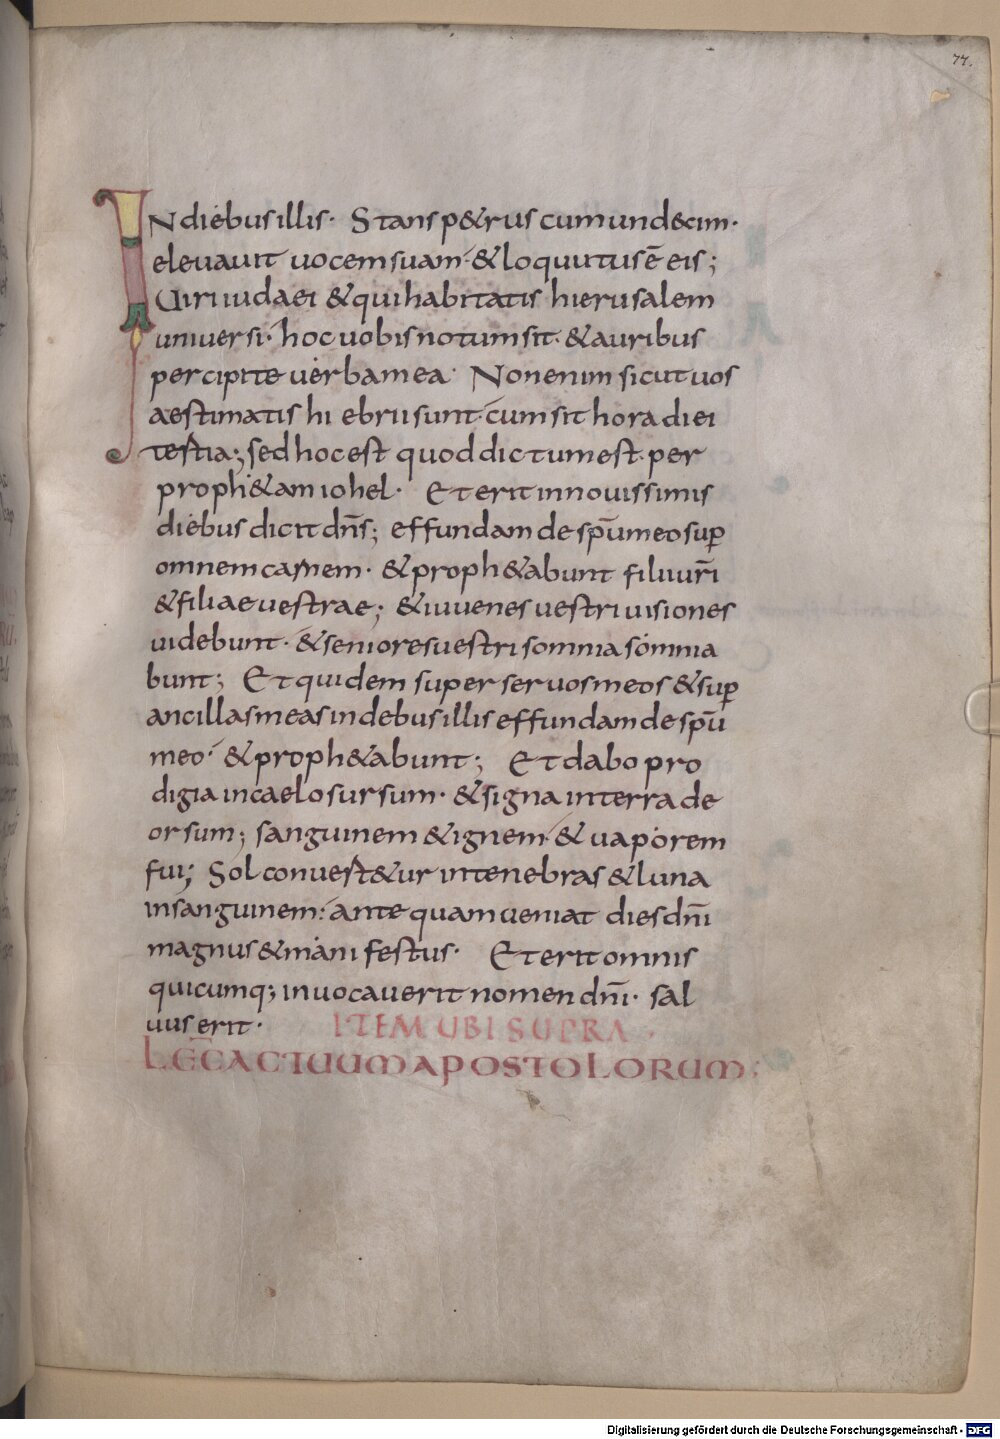 77.
IN diebus illis· Stans p&rus cum undecim·
elevavit vocem suam· & loquutus ē eis;
Uiri iudaei & qui habitatis hierusalem
universi· hoc uobis notum sit· & auribus
percipite uerba mea· Non enim sicut uos
aestimatis hi ebrii sunt· cum sit hora diei
testia; sed hoc est quod dictum est· per
proph&am iohel· Et erit in novissimis
diebus dicit dn̄s; effundam de spū meo sup̄
omnem carnem· & proph&abunt filii ur̄i
& filiae vestrae; & iuvenes vestri visiones
videbunt· & seniores vestri somnia somnia
bunt; Et quidem super servos meos & sup̄
ancillas meas in debus illis effundam de spū
meo· & proph&abunt; Et dabo pro
digia in caelo sursum· & signa in terra de
orsum; sanguinem & ignem· & vaporem
fui; Sol convest&ur in tenebras & luna
in sanguinem: ante quam veniat dies dn̄i
magnus & manifestus· Et erit omnis
quicumq; invocaverit nomen dn̄i· sal
vus erit· ITEM UBI SUPRA·
LEC̄ ACTUUM APOSTOLORUM;
Digitalisierung gefördert durch die Deutsche Forschungsgemeinschaft - DFG